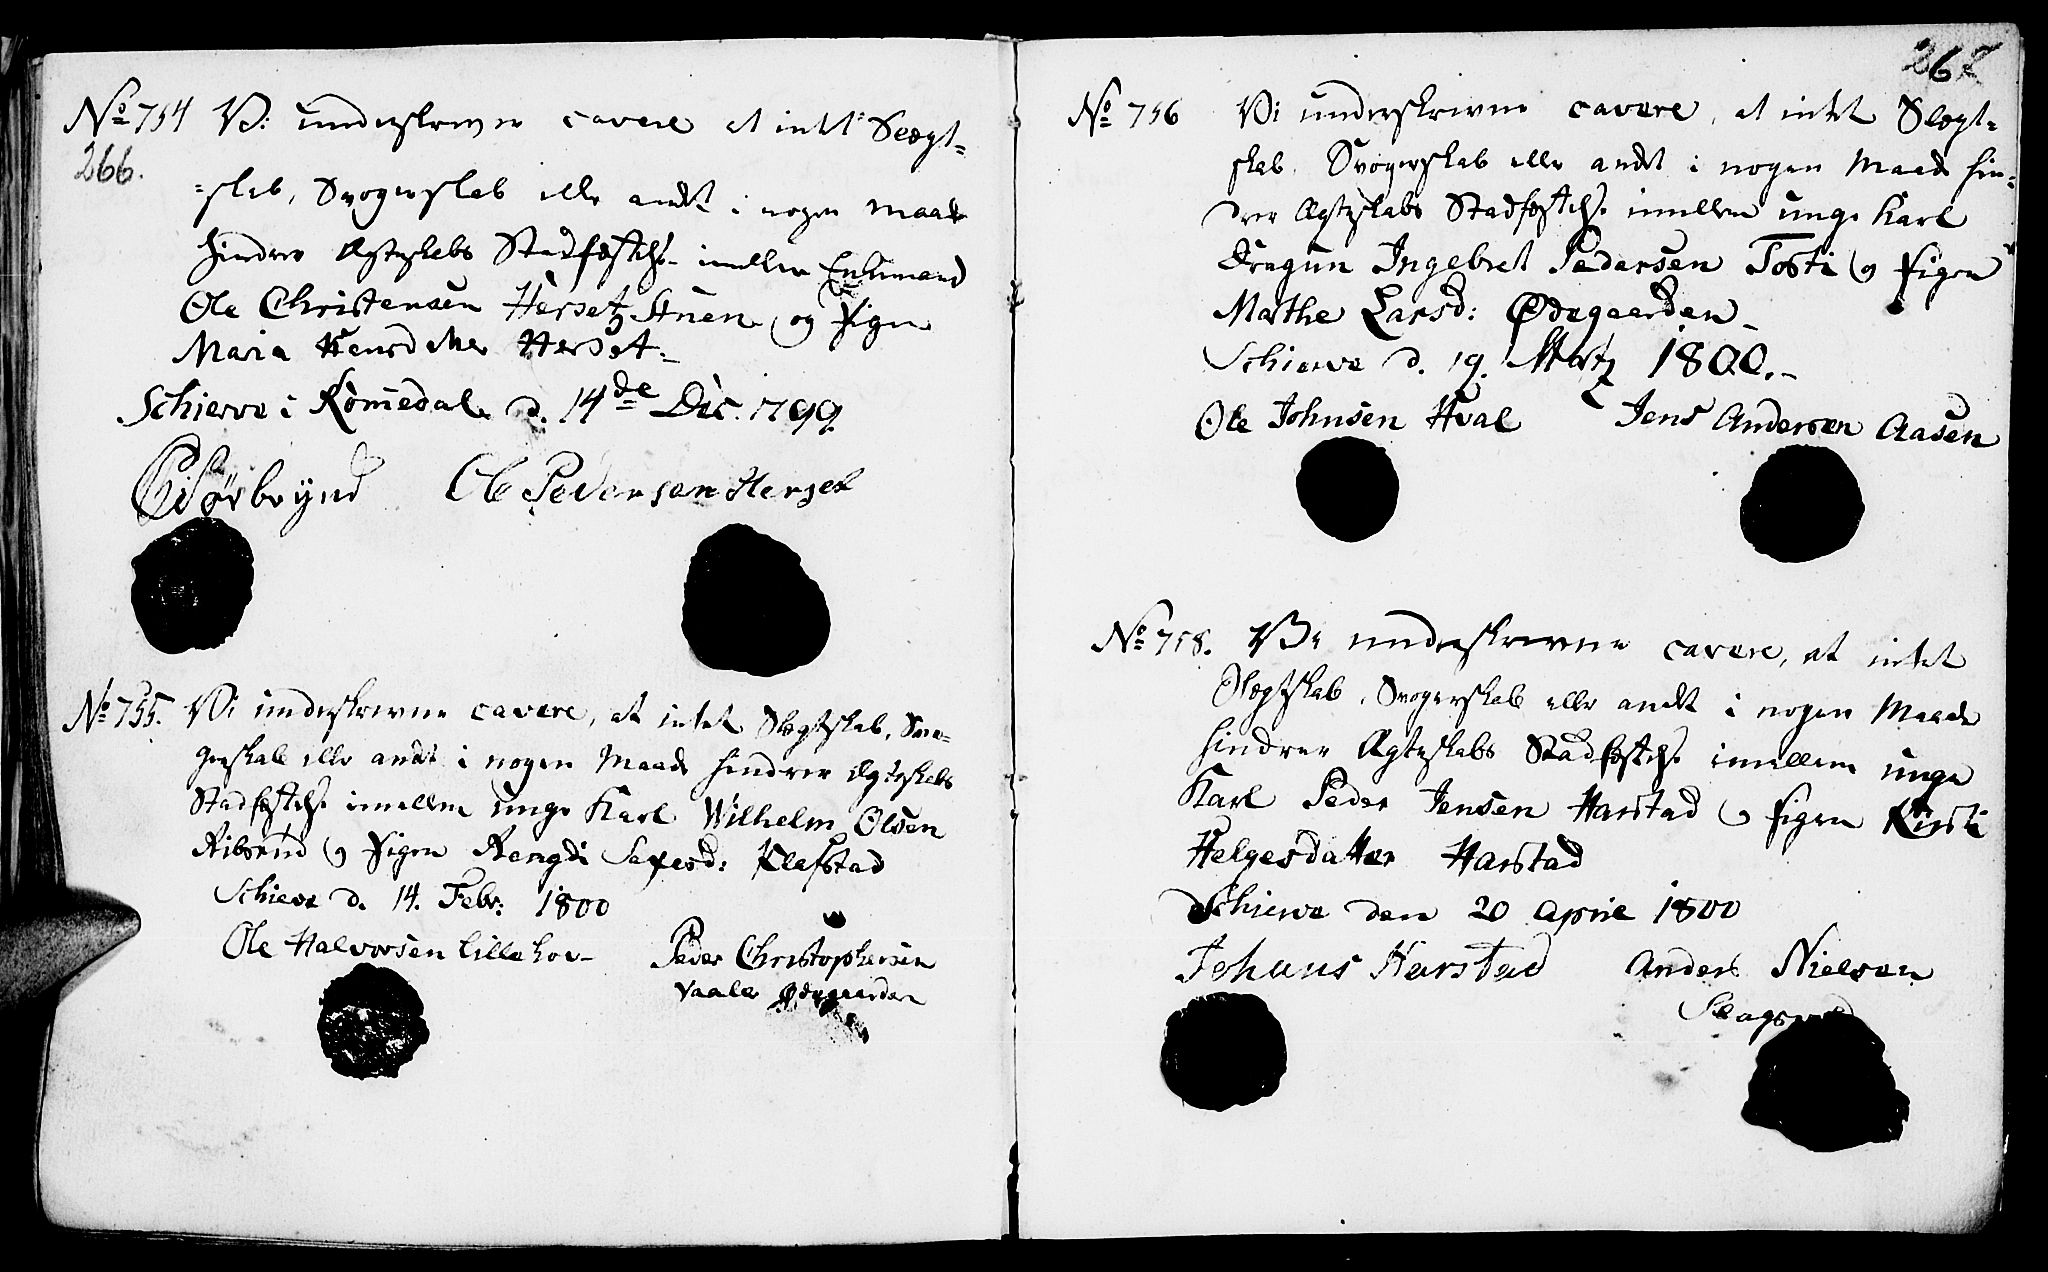 No 754 Vi underskrevne cavere at intet Slægt=
266.
=skab, Svogerskab eller andet i nogen Maade
hindrer Ægteskabs Stadfæstelse imellem Enkemand
Ole Christensen Hersetz Stuen og Pigen
Maria Herset
Schierve i Romedal d. 14de Dec. 1799
Ole Pedersen Herset
No 755. Vi underskrevne cavere, at intet Slægtskab, Svo=
gerskab eller andet i nogen Maade hindrer Ægteskabs
Stadfæstelse imellem unge Karl Wilhelm Olsen
og Pigen Rengdi Klafstad
Schieve d. 14. Febr: 1800
Ole Halvorsen Lillehov
Peder Christophersen
Vaaler Ødegaarden
267
No 756 Vi underskrevne cavere, at intet Slægt=
skab, Svogerskab eller andet i nogen Maade hin=
drer Ægteskabs Stadfæstelse imellem unge Karl
Dragun Ingebret Pedersen Tosti og Pigen
Marthe Larsd: Ødegaarden
Schierve d. 19. Martz 1800.
Ole Johnsen Hval Jens Andersen Aasen
No 758. Vi underskrevne cavere, at intet
Slægtskab, Svogerskab eller andet i nogen Maade
hindrer Ægteskabs Stadfæstelse imellem unge
Karl Peder Jensen Harstad og Pigen Kirsti
Helgesdatter Harstad
Schierve den 20 April 1800
Johans Harstad Anders Nielsen